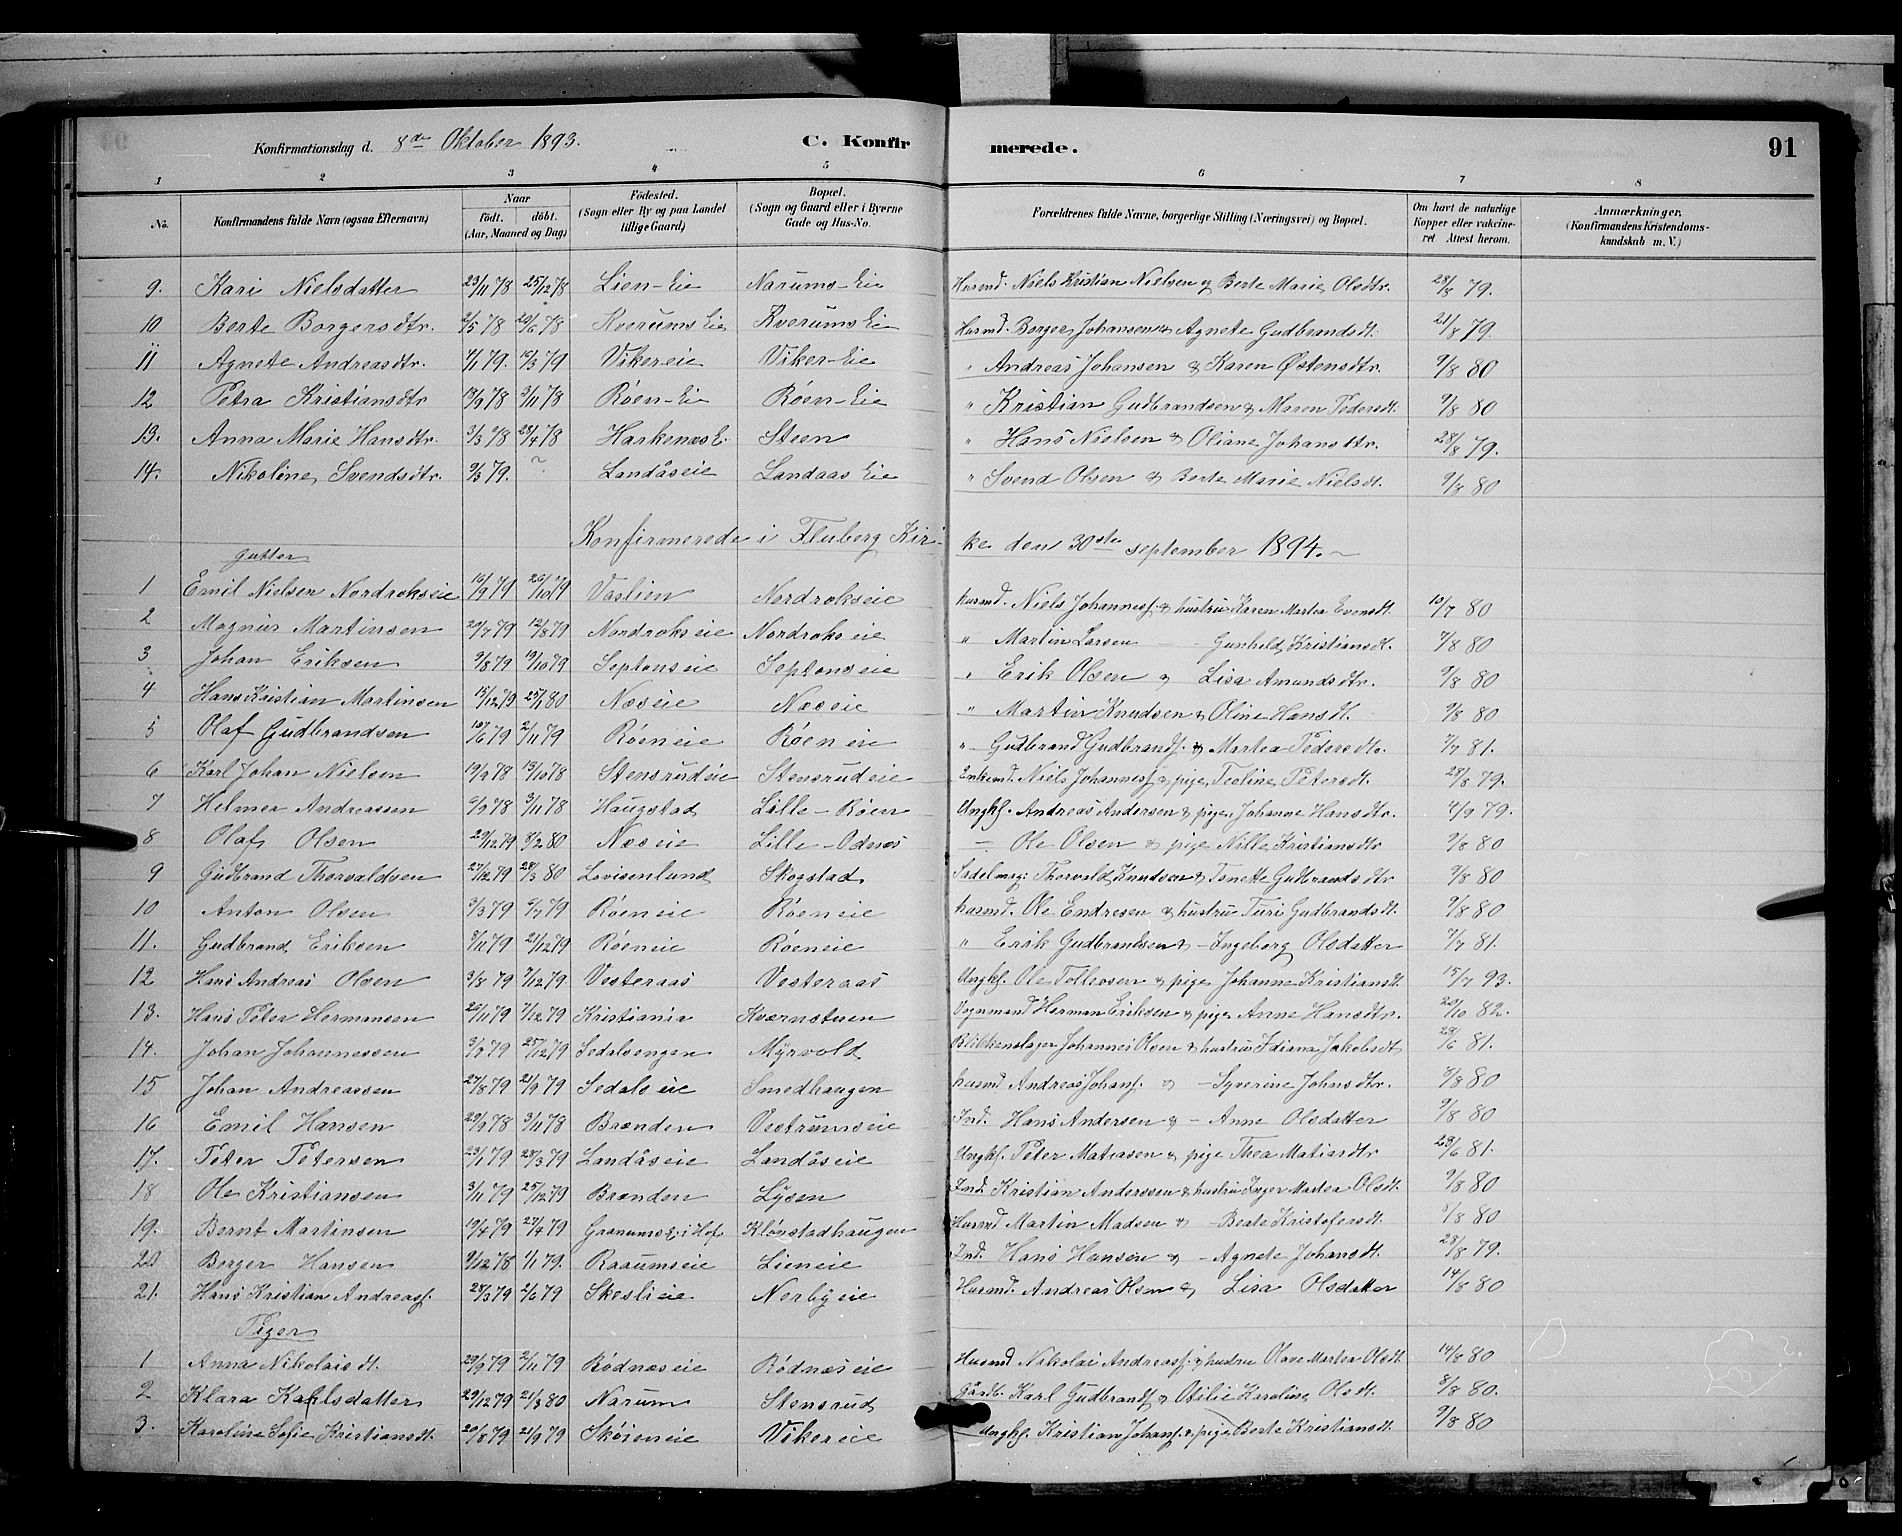 Konfirmationsdag d. 8de Oktober 1893. C. Konfirmerede. 91
1 2 3 4 5 6 7 8
No. Konfirmandens fulde Navn (ogsaa Efternavn) Naar födt. döbt. (Aar, Maaned og Dag) Födested. (Sogn eller By og paa Landet tillige Gaard) Bopæl. (Sogn og Gaard eller i Byerne Gade og Hus-No. Forældrenes fulde Navne, borgerlige Stilling (Næringsvei) og Bopæl. Om havt de naturlige Kopper eller vakcineret Attest herom. Anmærkninger. (Konfirmandens Kristendomskundskab m. V.)
9. Kari Nielsdatter 23/11 78 25/12 78 Lien-Eie Narums-Eie Husmd. Niels Kristian Nielsen og Berte Marie Olsdtr. 28/8 79.
10 Berte Borgersdtr. 2/5 78 20/6 78 Kverums Eie Kverums Eie Husmd. Borger Johansen & Agnete Gudbrandsdt. 21/8 79.
11 Agnete Andreasdtr. 4/1 79. 15/3 79 Vikereie Viker-Eie " Andreas Johansen & Karen Østensdtr. 9/8 80
12 Petra Kristiansdtr 19/9 78 3/11 78 Røen-Eie Røen-Eie " Kristian Gudbrandsen & Maren Pedersdt. 9/8 80
13. Anna Marie Hansdtr. 3/3 78 28/4 78 Harkernes E. Steen " Hans Nielsen & Oliane Johansdtr. 28/8 79.
14. Nikoline Svendsdtr. 9/3 79. ~ Landåseie Landaas Eie " Svend Olsen & Berte Marie Nielsdt. 9/8 80
Konfirmerede i Fluberg Kirke den 30ste september 1894.
gutter
1 Emil Nielsen Nordrokseie 16/9 79 26/10 79 Vaslien Nordrokseie husmd. Niels Johannesf. & hustru Karen Martea Evensdt. 15/7 80
2 Magnus Martinsen 20/7 79 12/8 79 Nordrokseie Nordrokseie " Martin Larsen - Gunhild Kristiansdt. 7/8 80
3 Johan Eriksen 9/8 79 19/10 79 Septonseie Septonseie " Erik Olsen & Lisa Amundsdtr. 9/8 80
4 Hans Kristian Martinsen 15/12 79 25/1 80 Næseie Næseie " Martin Knudsen & Oline Hansdt. 9/8 80
5 Olaf Gudbrandsen 10/6 79 2/11 79 Røeneie Røeneie " Gudbrand Gudbrandf. & Martea Pedersdtr. 7/7 81.
6 Karl Johan Nielsen 19/9 78 13/10 78 Stensrudeie Stensrudeie Enkemd. Niels Johannesf. & pige Teoline Petersdt. 28/8 79.
7 Helmer Andreassen 6/9 78 3/11 78 Haugstad Lille-Røen Ungkf. Andreas Andersen & pige Johanne Hansdtr. 4/9 79.
8 Olaf Olsen 29/12 79 8/2 80 Næseie Lille-Odnes -"- Ole Olsen & pige Nille Kristiansdtr 9/8 80
9 Gudbrand Thorvaldsen 27/12 79 28/3 80 Lovisenlund Skogstad Sadelmag: Thorvald Knudsen & Tonette Gudbrandsdtr 9/8 80
10 Anton Olsen 3/3 79 6/7 79 Røeneie Røeneie husmd. Ole Endresen & hustru Turi Gudbrandsdt. 9/8 80
11. Gudbrand Eriksen 8/11 79 21/12 79 Røeneie Røeneie " Erik Gudbrandsen & - Ingeborg Olsdatter 7/7 81.
12 Hans Andreas Olsen 3/8 79 7/12 79 Vesteraas Vesteraas Ungkf. Ole Tollevsen & pige Johanne Kristiansdt. 15/7 93.
13. Hans Peter Hermansen 26/11 79 7/12 79 Kristiania Kværnstuen Vognmand Herman Eriksen & pige Anne Hansdtr. 20/10 82.
14. Johan Johannessen 3/9 79 25/12 79 Sedalsengen Myrvold Blikkenslager Johannes Olsen & hustru Idiana Jakobsdt 28/6 81.
15 Johan Andreassen 27/8 79 21/9 79 Sedalseie Smedhaugen husmd Andreas Johansf. & - Syverine Johnsdtr. 9/8 80
16 Emil Hansen 22/9 78 3/11 78 Brænden Vestrumseie Ind. Hans Andersen & - Anne Olsdatter 9/8 80
17. Peter Petersen 23/1 79 23/3 79 Landåseie Landåseie Ungkf. Peter Matiasen & pige Thea Matiasdtr 28/6 81.
18 Ole Kristiansen 3/11 79 25/12 79 Brænden Lysen Ind. Kristian Anderssen & hustru Inger Martea Olsdt. 9/8 80
19. Bernt Martinsen 19/4 79 27/4 79 Granums E. i Hof Klønstadhaugen Husmd Martin Madsen & - Beate Kristofersdt. 9/8 80
20 Borger Hansen 9/12 78 1/1 79. Raaumseie Lieneie Ind. Hans Hansen & - Agnete Johansdt. 28/8 79.
21. Hans Kristian Andreasf. 28/3 79 2/6 79 Skeslieie Nerbyeie Husmd. Andreas Olsen & Lisa Olsdatter 14/8 80
Piger
1 Anna Nikolaisdt. 29/9 79 2/11 79 Rødnæseie Rødnæseie Husmd Nikolai Andreasf. & hustru Olave Martea Olsdt. 14/8 80
2 Klara Karlsdatter 29/12 79 21/3 80 Narum Stensrud Gårdb. Karl Gudbrandf. & Otilie Karoline Olsdt. 8/8 80.
3. Karoline Sofie Kristiansdt. 20/8 79 21/9 79 Skøieneie Vikereie Ungkf. Kristian Johansf. & pige Berte Kristiansdt. 9/8 80